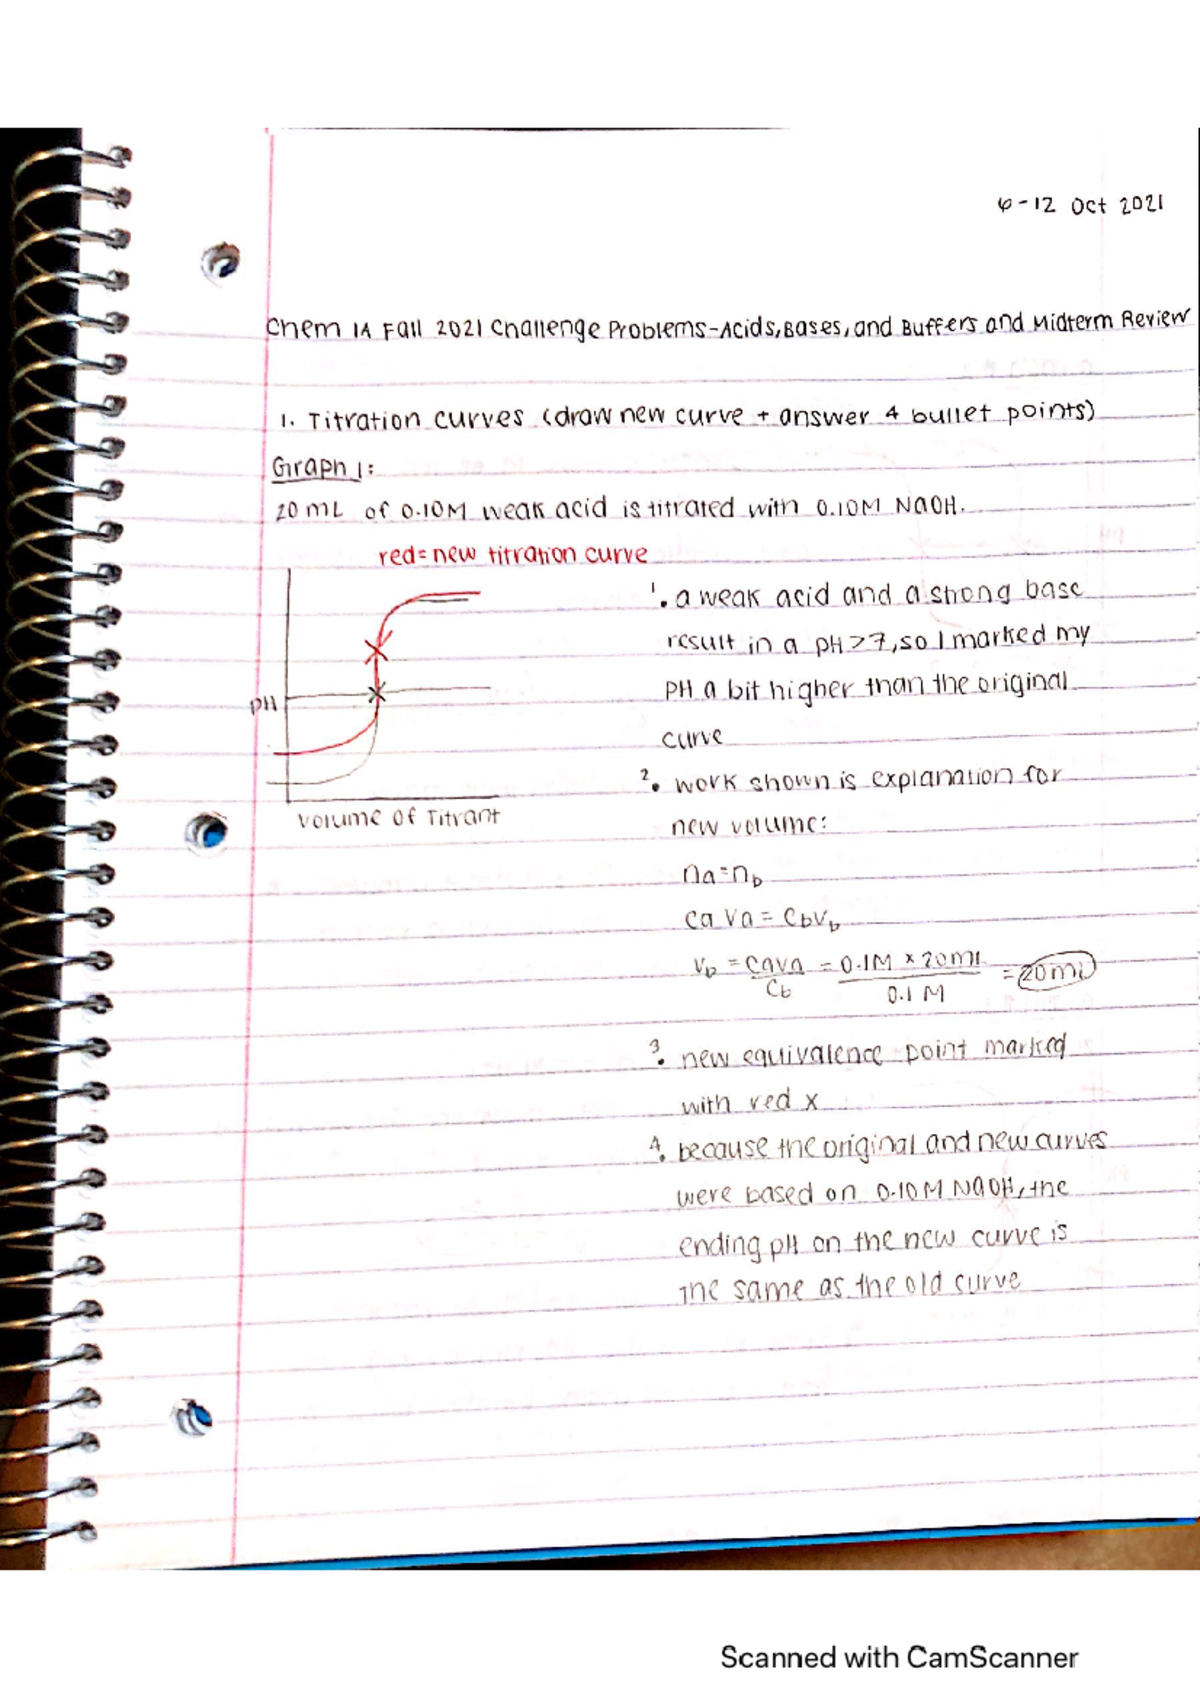 6-12 Oct 2021
Chem 1A Fall 2021 Challenge Problems-Acids, Bases, and Buffers and Midterm Review
1. Titration curves (draw new curve + answer 4 bullet points)
Graph 1:
20 mL of 0.10M weak acid is titrated with 0.10M NaOH.
red=new titration curve
1. a weak acid and a strong base
result in a pH>7, so I marked my
pH a bit higher than the original
curve
pH
volume of Titrant
2. work shown is explanation for
new volume:
na=nb
CaVa=CbVb
Vb = CaVa/Cb = 0.1M × 20ml/0.1 M = 20ml
3. new equivalence point marked
with red x
4. because the original and new curves
were based on 0.10M NaOH, the
ending pH on the new curve is
the same as the old curve
Scanned with CamScanner